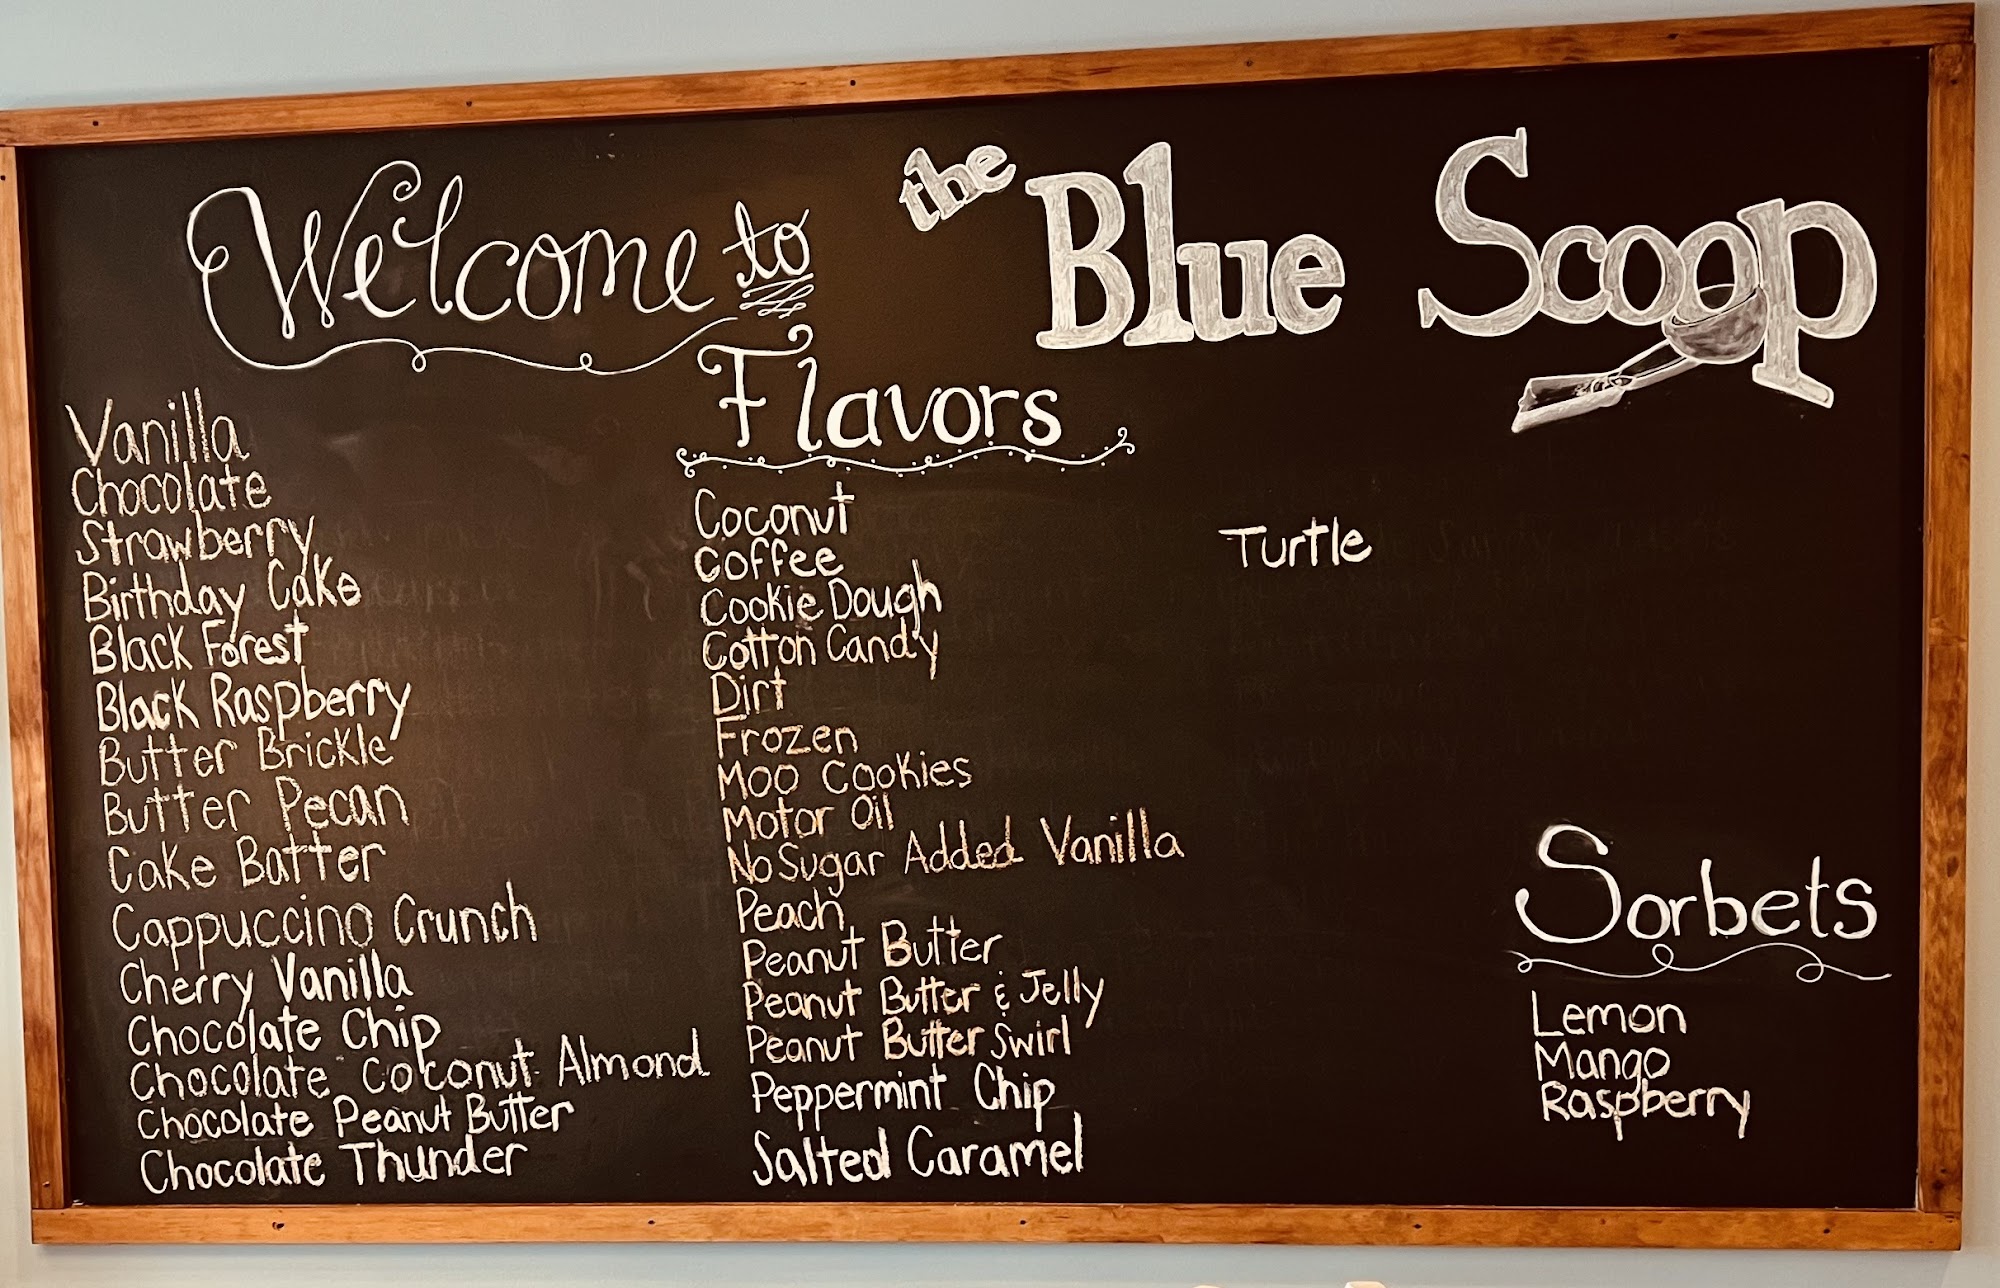 Welcome to
the Blue Scoop
Flavors
Vanilla
Chocolate
Strawberry
Birthday Cake
Black Forest
Black Raspberry
Butter Brickle
Butter Pecan
Cake Batter
Cappuccino Crunch
Cherry Vanilla
Chocolate Chip
Chocolate Coconut Almond
Chocolate Peanut Butter
Chocolate Thunder
Coconut
Coffee
Cookie Dough
Cotton Candy
Dirt
Frozen
Moo Cookies
Motor Oil
No Sugar Added Vanilla
Peach
Peanut Butter
Peanut Butter & Jelly
Peanut Butter Swirl
Peppermint Chip
Salted Caramel
Turtle
Sorbets
Lemon
Mango
Raspberry